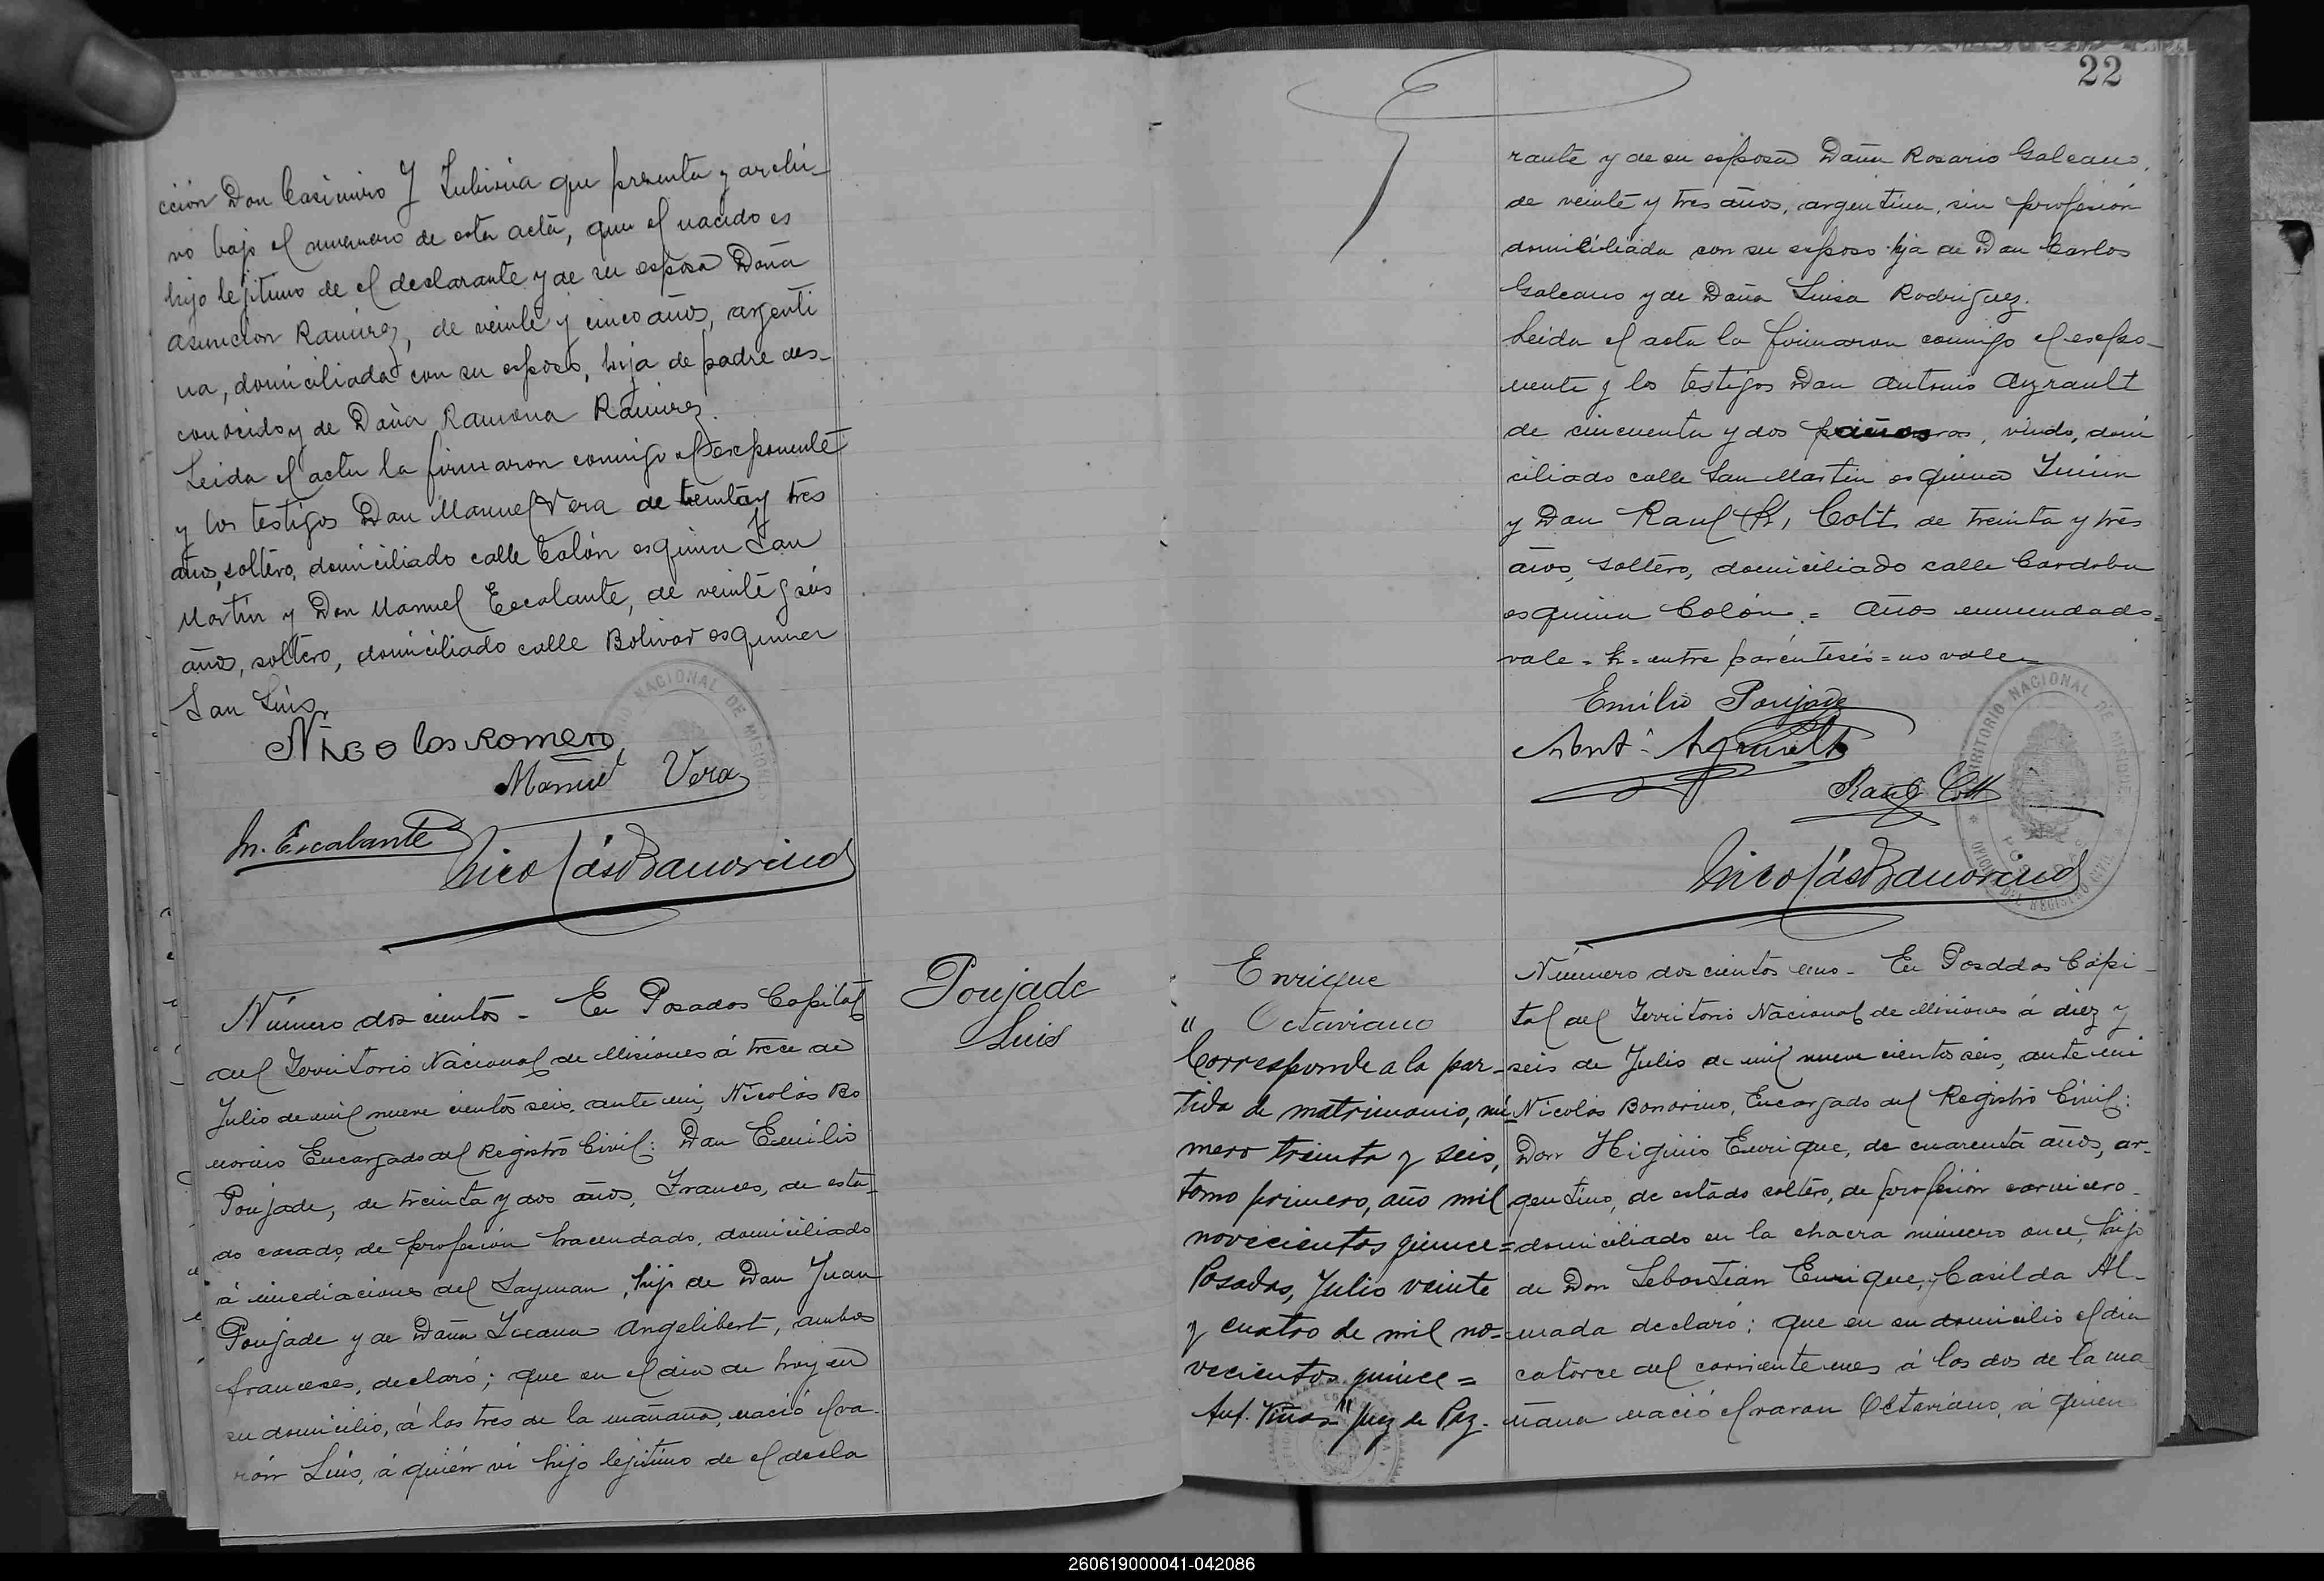 cción Don Casimiro Y Lubiria que presenta y archi-
vó bajo el numero de esta acta, que el nacido es
hijo lejitimo de el declarante y de su esposa Doña
Asuncion Ramirez, de veinte y cinco años, argenti
na, domiciliada con su esposo, hija de padre des-
conocido y de Doña Ramona Ramirez.
Leida el acta la firmaron conmigo el esexponente
y los testigos Don Manuel Vera de treinta y tres
años, soltero, domiciliado calle Colón esquina San
Martin y Don Manuel Escalante, de veinte y seis
años, soltero, domiciliado calle Bolivar esquina
San Luis,
Nicolas Romero
Manuel Vera
M. Escalante
Nicolás Bonorino
Poujade
Luis
Número doscientos - En Posadas Capital
del Territorio Nacional de Misiones á trece de
Julio de mil nueve cientos seis, ante mi, Nicolás Bo
norino Encargado del Registro Civil: Don Emilio
Poujade, de treinta y dos años, Frances, de esta-
do casado, de profesión hacendado, domiciliado
á imediaciones del Zayman, hijo de Don Juan
Poujade y de Doña Angelibert, ambos
franceses, declaró; que en el dia de hoy en
su domicilio, á las tres de la mañana, nació el va-
rón Luis, á quién vi hijo lejitimo de el decla
22
rante y de su esposa Doña Rosario Galeano,
de veinte y tres años, argentina, sin profesión
domiciliada con su esposo hija de Don Carlos
Galeano y de Doña Luisa Rodriguez.
Leida el acta la firmaron conmigo el espo-
nente y los testigos Don Antonio Ayrault
de cincuenta y dos años, viudo, domi
ciliado calle San Martin esquina Junin
y Don Raul (h, Cott de treinta y tres
años, soltero, domiciliado calle Cordoba
esquina Colón. = Años enmendado=
vale = h = entre paréntesis = no vale
Emilio Poujade
Ant. Ayrault
Raul Cott
TERRITORIO NACIONAL DE MISIONES
OFICINA DEL REGISTRO CIVIL
POSADAS
Nicolás Bonorino
Enrique
" Octaviano
Corresponde a la par-
tida de matrimonio, nú-
mero treinta y seis,
tomo primero, año mil
novecientos quince=
Posadas, Julio veinte
y cuatro de mil no-
vecientos quince =
Ant. Viñas" Juez de Paz.
Número dos cientos uno - En Posadas Capi-
tal del Territorio Nacional de Misiones á diez y
seis de Julio de mil nueve cientos seis, ante mi
Nicolás Bonorino, Encargado del Registro Civil:
Don Higinio Enrique, de cuarenta años, ar-
gentino, de estado soltero, de profesión carnicero
domiciliado en la chacra número once, hijo
de Don Sebastián Enrique, y Casilda Al-
mada declaró; que en su domicilio el dia
catorce del corriente mes á las dos de la ma
ñana nació el varon Octaviano, á quien
260619000041-042086